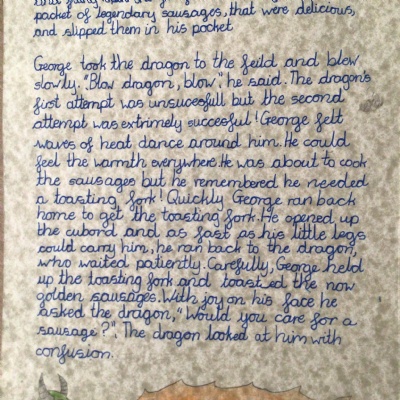 packet of legendary sausages, that were delicious,
and slipped them in his pocket
George took the dragon to the feild and blew
slowly. "Blow dragon, blow", he said. The dragon's
first attempt was unsucesfull but the second
attempt was extremely succesful! George felt
waves of heat dance around him. He could
feel the warmth everywhere. He was about to cook
the sausages but he remembered he needed
a toasting fork! Quickly George ran back
home to get the toasting fork. He opened up
the cubord and as fast as his little legs
could carry him, he ran back to the dragon,
who waited patiently. Carefully, George held
up the toasting fork and toasted the now
golden sausages. With joy on his face he
asked the dragon, "Would you care for a
sausage?". The dragon looked at him with
confusion.